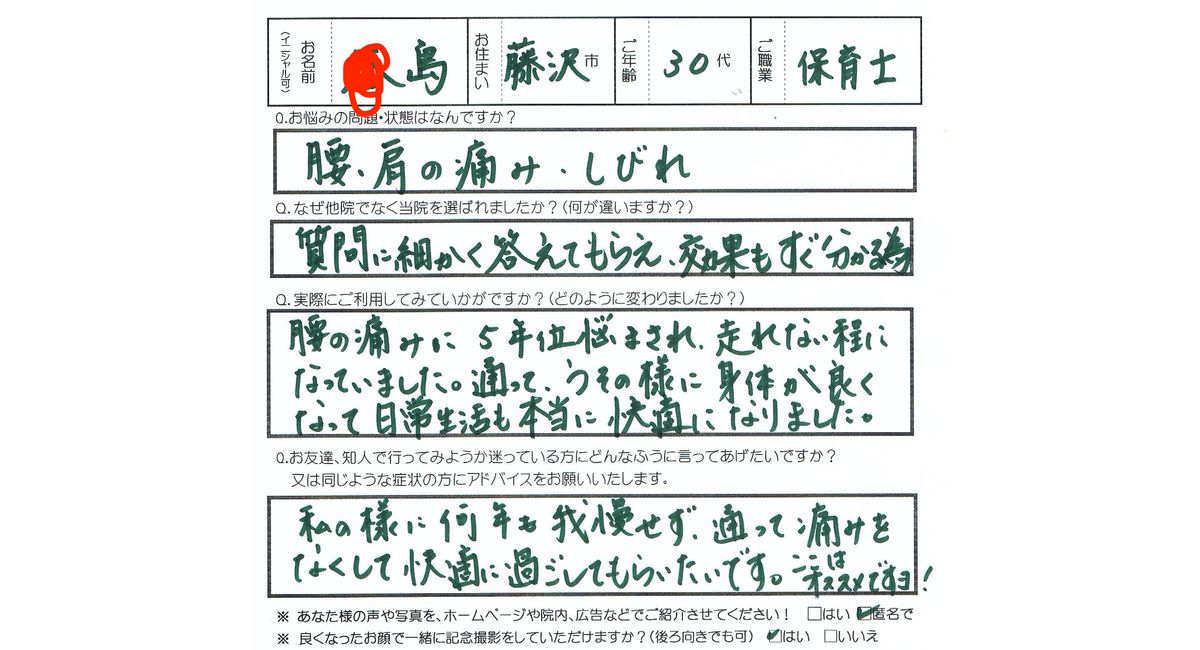 お名前 (イニシャル可) 島 お住まい 藤沢 市 ご年齢 30 代 ご職業 保育士
Q.お悩みの問題・状態はなんですか？
腰、肩の痛み・しびれ
Q.なぜ他院でなく当院を選ばれましたか？(何が違いますか？)
質問に細かく答えてもらえ、効果もすぐ分かる為
Q.実際にご利用してみていかがですか？(どのように変わりましたか？)
腰の痛みに5年位悩まされ、走れない程に
なっていました。通って、うその様に身体が良く
なって日常生活も本当に快適になりました。
Q.お友達、知人で行ってみようか迷っている方にどんなふうに言ってあげたいですか？
又は同じような症状の方にアドバイスをお願いいたします。
私の様に何年も我慢せず、通って痛みを
なくして快適に過ごしてもらいたいです。ここは
オススメですヨ！
※ あなた様の声や写真を、ホームページや院内、広告などでご紹介させてください！ □はい ☑匿名で
※ 良くなったお顔で一緒に記念撮影をしていただけますか？(後ろ向きでも可) ☑はい □いいえ